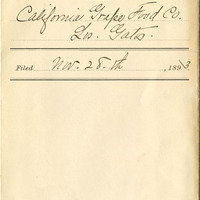 California Grape Food Co.
Los Gatos.
Filed Nov. 28.th , 1893